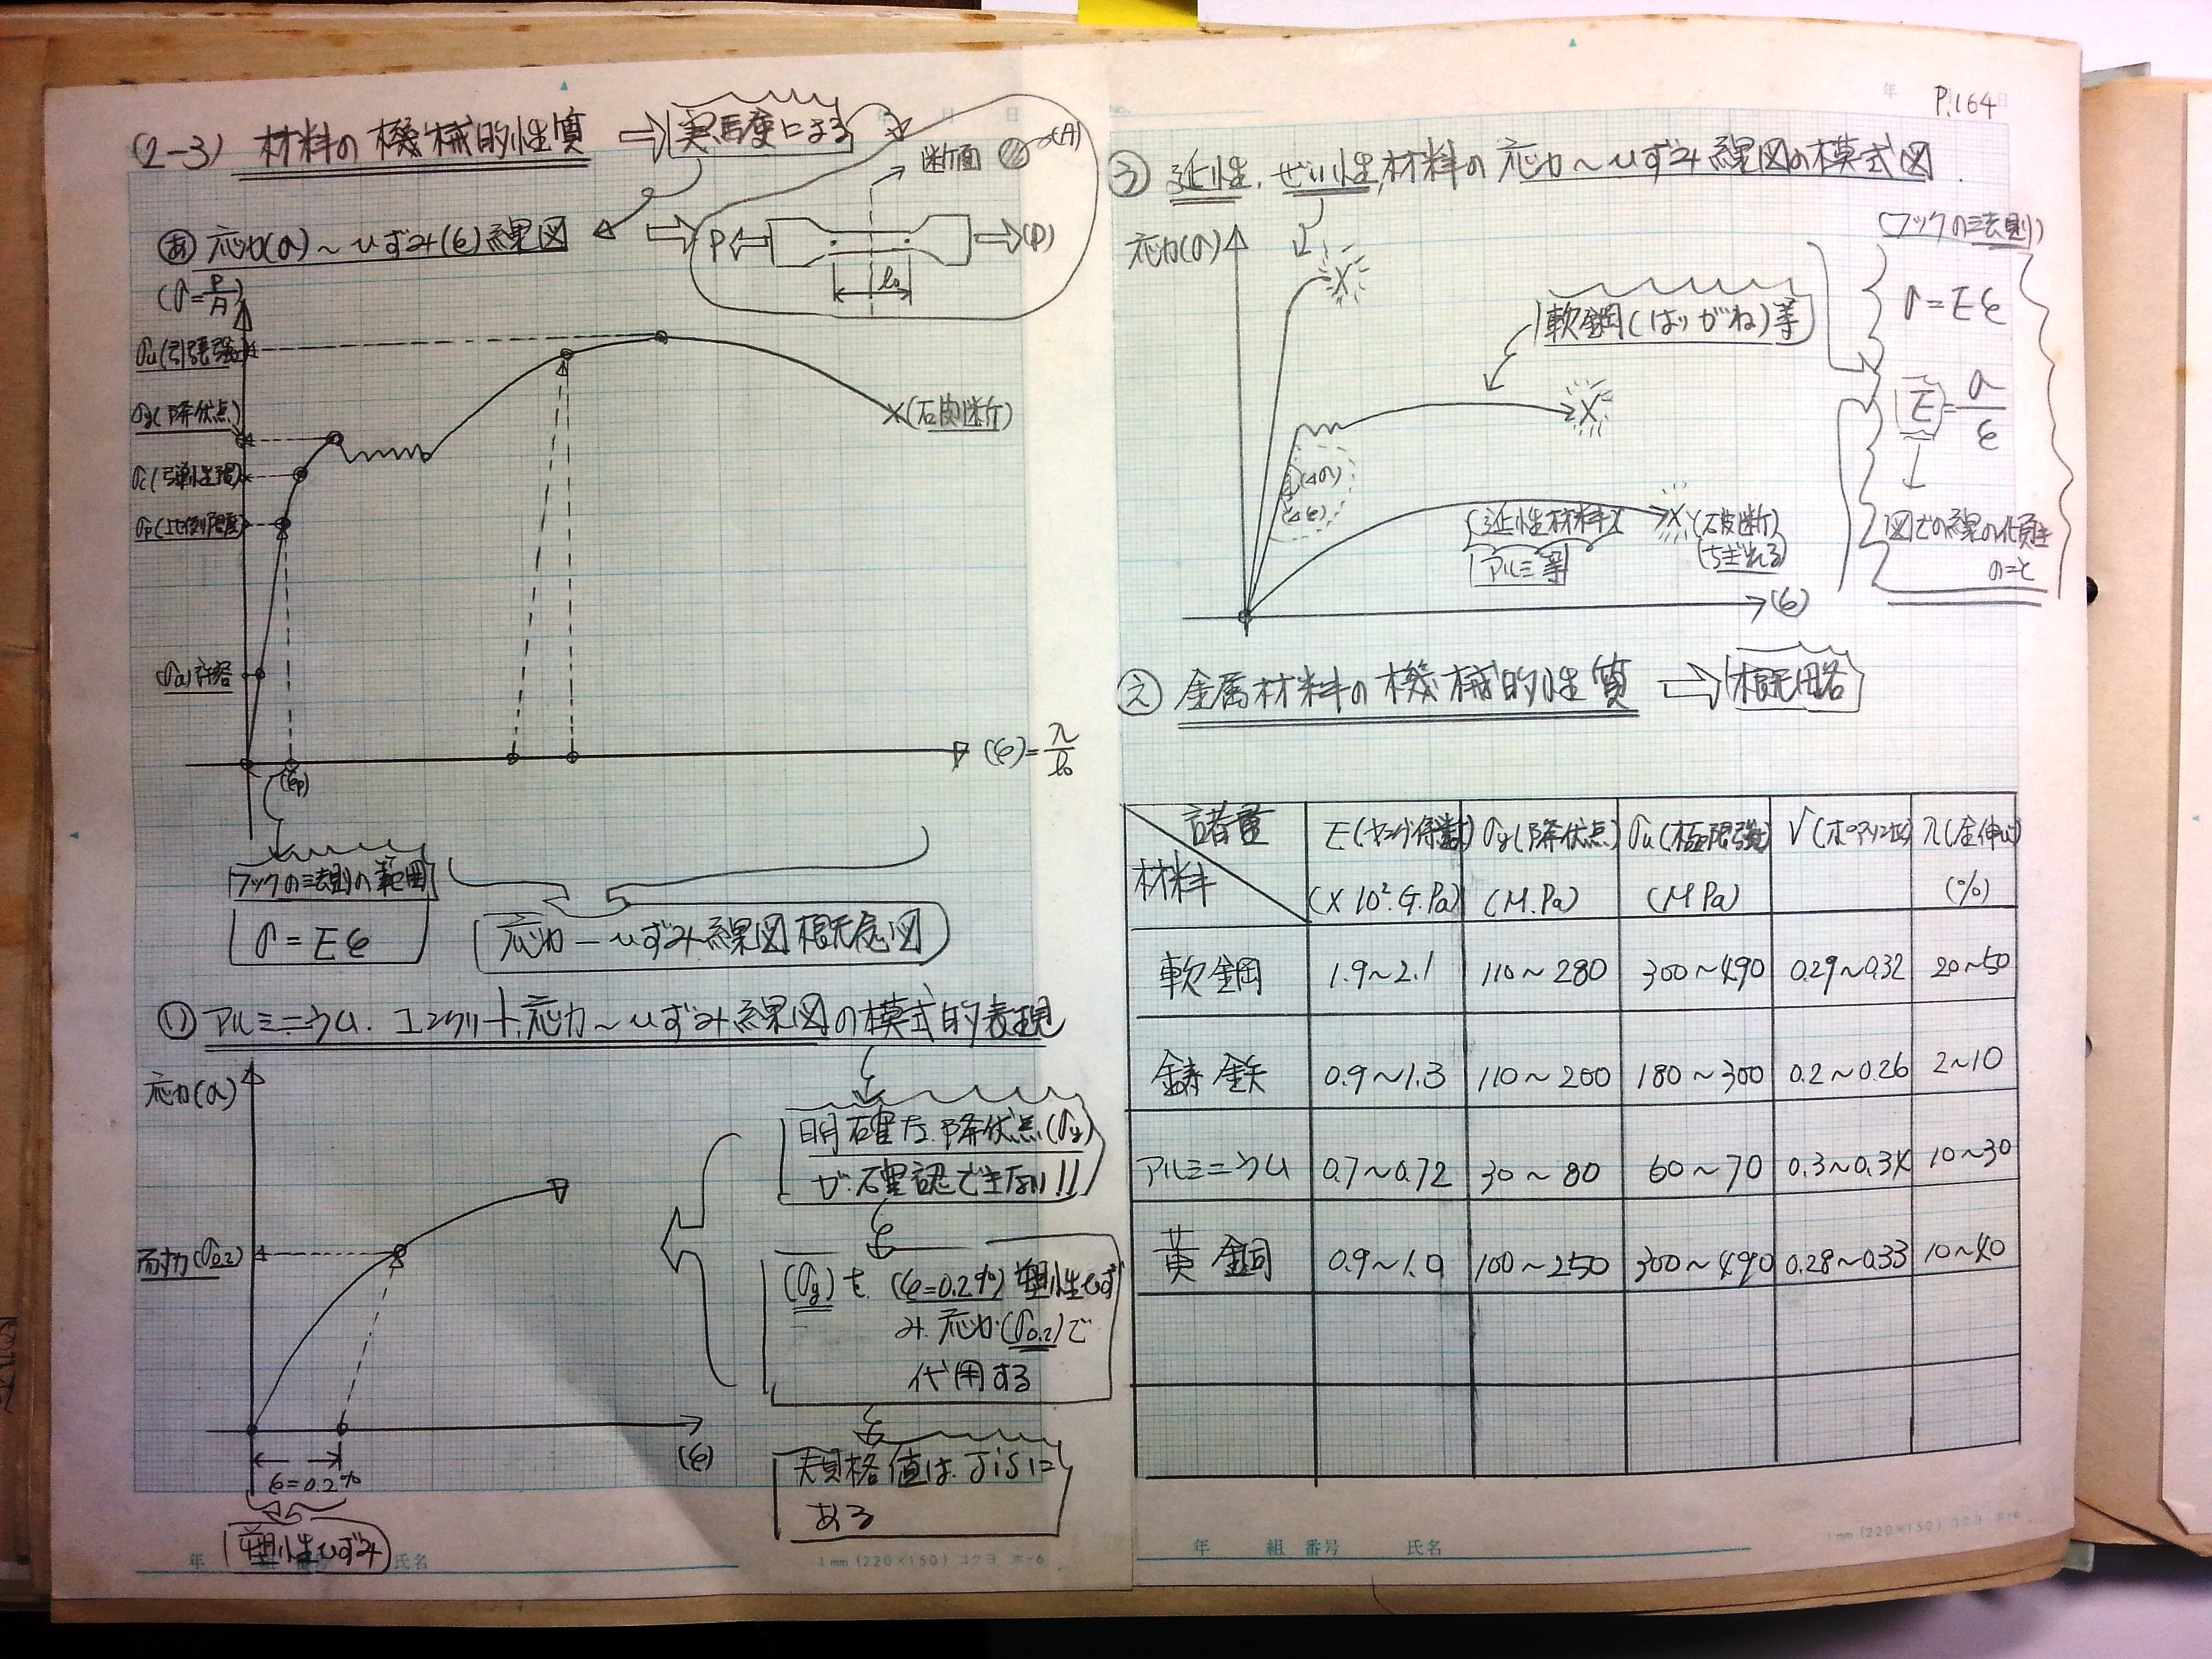 (2-3) 材料の機械的性質
実験による
断面 (A)
P (P)
l₀
㋐ 応力(σ)~ひずみ(ε)線図
(σ=P/A)
σu(引張強
σy(降伏点)
σe(弾性限)
σp(比例限度)
σa)許容
X(破断)
(εp)
(ε)=λ/l₀
フックの法則の範囲
σ=Eε
応力-ひずみ線図概念図
㋑ アルミニウム.コンクリート,応力~ひずみ線図の模式的表現
応力(σ)
耐力(σ0.2)
(ε)
ε=0.2%
塑性ひずみ
明確な降伏点(σy)
が確認できない!!
(σy)を (ε=0.2%)塑性ひず
み応力(σ0.2)で
代用する
規格値は JiSに
ある
年 組 番号 氏名
1mm (220×150) コクヨ ホ-6
No.
年 月 日
P.164
㋒ 延性.ぜい性材料の応力~ひずみ線図の模式図
応力(σ)
軟鋼(はりがね)等
(Δσ)
(Δε)
(延性材料)
アルミ等
X(破断)
(ちぎれる)
(ε)
(フックの法則)
σ=Eε
E=σ/ε
図での線の傾き
のこと
㋓ 金属材料の機械的性質
概略
諸量
材料
E(ヤング係数) σy(降伏点) σu(極限強) ν(ポアソン比) λ(全伸び)
(×10².G.Pa) (M.Pa) (MPa) (%)
軟鋼 1.9~2.1 110~280 300~490 0.29~0.32 20~50
鋳鉄 0.9~1.3 110~200 180~300 0.2~0.26 2~10
アルミニウム 0.7~0.72 30~80 60~70 0.3~0.34 10~30
黄銅 0.9~1.0 100~250 300~490 0.28~0.33 10~40
年 組 番号 氏名
1mm (220×150) コクヨ ホ-6